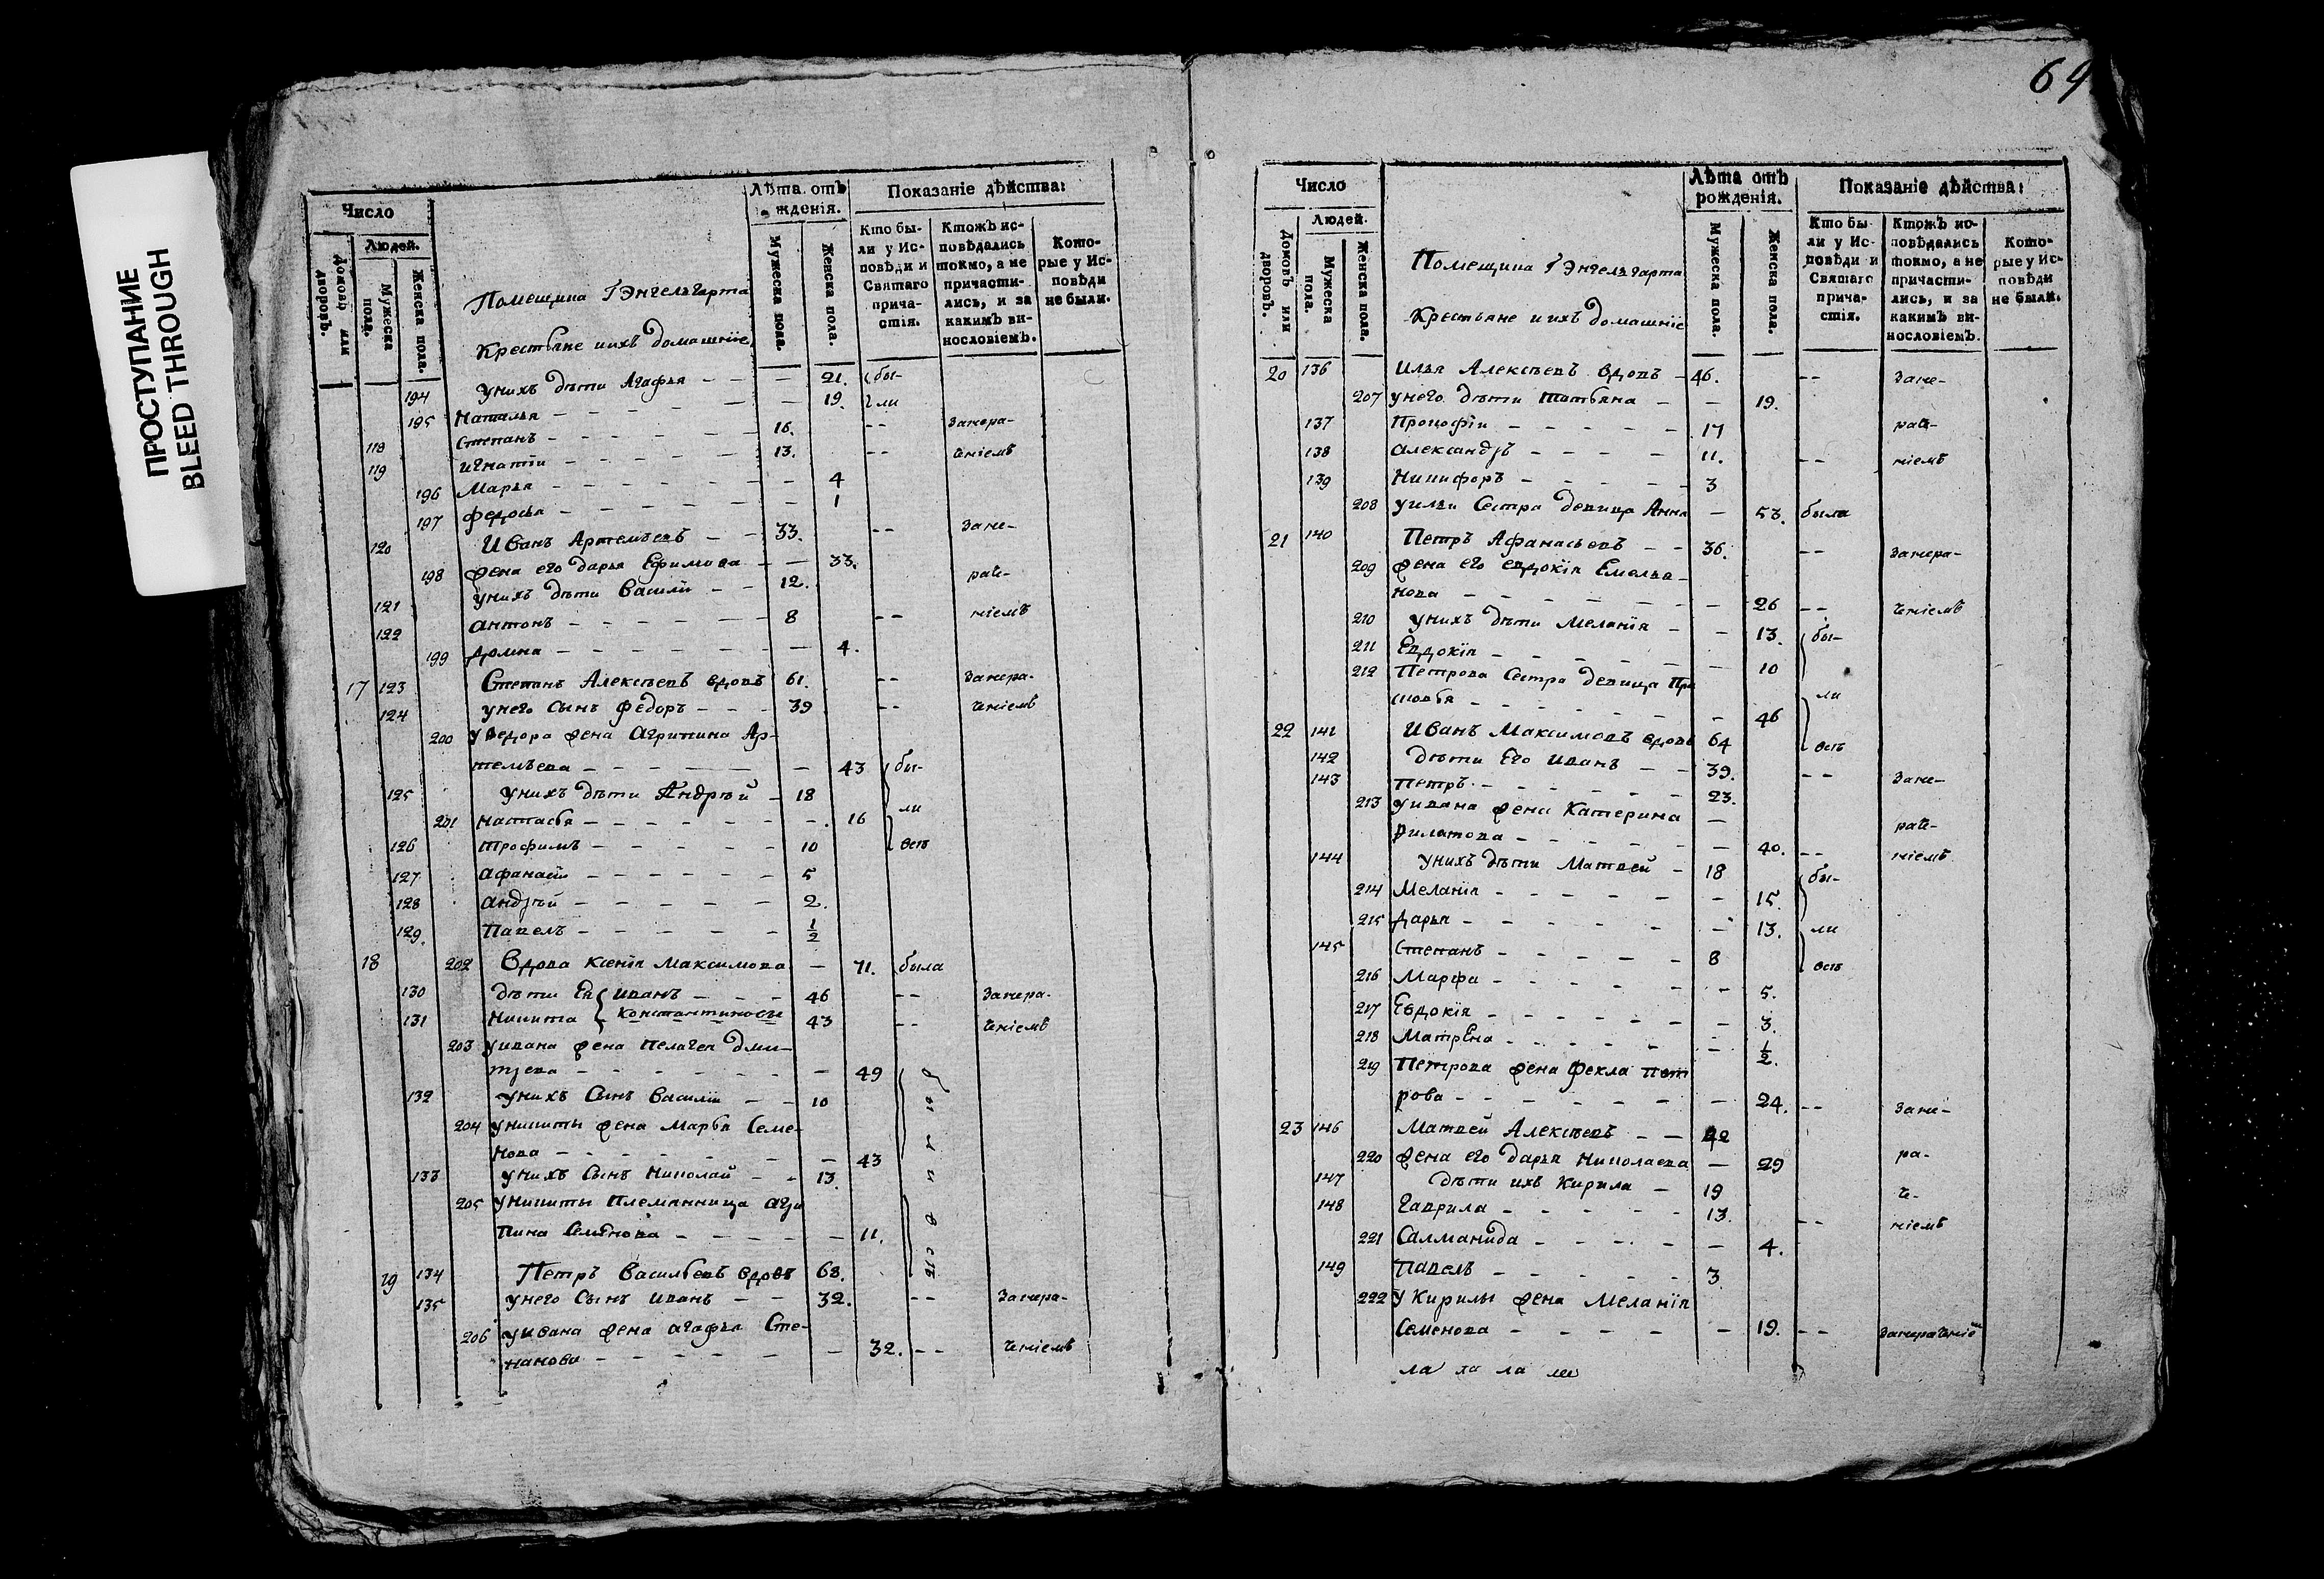 ПРОСТУПАНИЕ
BLEED THROUGH
69
Число
Людей.
Домовъ или дворовъ.
Мужеска пола.
Женска пола.
Помещика Г Энгельгарта
Крестьяне и ихъ домашніе
Лѣта отъ рожденія.
Мужеска пола.
Женска пола.
Показаніе дѣйства:
Кто были у Исповѣди и Святаго причастія.
Ктожъ исповѣдались токмо, а не причастились, и за какимъ винословіемъ.
Которые у Исповѣди не были.
194 унихъ дѣти Агафья - - - 21. бы-
195 Наталья - - - 19. ли
118 Степанъ - - - 16. - - Закера-
119 Игнатіи - - - 13. - - чніемъ
196 Марья - - - 4
197 Федосья - - - 1
120 Иванъ Артемьевъ - - 33. - - Заке-
198 жена его дарья Ефимова - - 33. раче-
121 унихъ дѣти Василіи - - 12.
122 антонъ - - - 8 - - ніемъ
199 Домна - - - 4.
17 123 Степанъ Алексѣевъ вдовъ 61. - - Закера-
124 унего сынъ Федоръ - - - 39 - - чніемъ
200 у Федора жена Агрипина Ар-
темьева - - - 43 бы-
125 унихъ дѣти Андрѣй - 18
201 Настасья - - - 16 ли
126 Трофимъ - - - 10 всѣ
127 Афанасіи - - - 5
128 андрѣй - - - 2.
129. Павелъ - - - 1/2
18 202 Вдова Ксенія Максимова - 71. была
130 дѣти Ея Иванъ - - - 46 - - Закера-
131 Никита Константиновы 43 - - чніемъ
203 уивана жена Пелагея дми-
трева - - - 49 были всѣ
132 унихъ Сынъ Василіи - - 10
204 уникиты жена Марья Семе-
нова - - - 43
133 унихъ Сынъ Николай - - 13.
205 уникиты племянница агри
пина Семенова - - - 11.
19 134 Петръ Васильевъ вдовъ 68.
135 унего Сынъ Иванъ - - 32. - - Закера-
206 уивана жена агафья Сте-
панова - - - 32. - - чніемъ
Число
Людей.
Домовъ или дворовъ.
Мужеска пола.
Женска пола.
Помещика Г Энгельгарта
Крестьяне и ихъ домашніе
Лѣта отъ рожденія.
Мужеска пола.
Женска пола.
Показаніе дѣйства:
Кто были у Исповѣди и Святаго причастія.
Ктожъ исповѣдались токмо, а не причастились, и за какимъ винословіемъ.
Которые у Исповѣди не были.
20 136 Илья Алексѣевъ вдовъ - 46. - - Заке-
207 унего дѣти Татьяна - - 19.
137 Прокофіи - - - 17 раче-
138 Александръ - - - 11. - - ніемъ
139 Никифоръ - - - 3
208 уильи Сестра девица Анна - 53. была
21 140 Петръ Афанасьевъ - - 36. - - Закера-
209 жена его евдокія Емелья-
нова - - - 26 - - чніемъ
210 унихъ дѣти Меланія - - 13. бы-
211 Евдокія - - - 10
212 Петрова Сестра девица Пра
сковья - - - 46 ли
22 141 Иванъ Максимовъ вдовъ 64 всѣ
142 дѣти Его Иванъ - - 39. - - Заке-
143 Петръ - - - 23.
213 уивана жена Катерина - раче-
Филатова - - - 40. - - ніемъ
144 унихъ дѣти Матвей - 18 бы-
214 Меланія - - - 15.
215 Дарья - - - 13. ли
145 Степанъ - - - 8 всѣ
216 Марфа - - - 5.
217 Евдокія - - - 3.
218 Матрена - - - 1/2.
219 Петрова жена Фекла Пет
рова - - - 24. - - Заке-
23 146 Матвей Алексѣевъ - - 42
220 жена его Дарья Николаева - 29 ра-
147 дѣти ихъ Кирила - 19 че-
148 Гаврила - - - 13. - - ніемъ
221 Салманида - - - 4.
149 Павелъ - - - 3
222 У Кирилы жена Меланія
Семенова - - - 19. - - Закерачніем